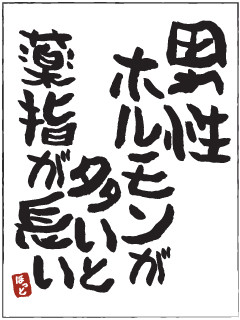 男性
ホルモンが
多いと
薬指が長い
ほっと